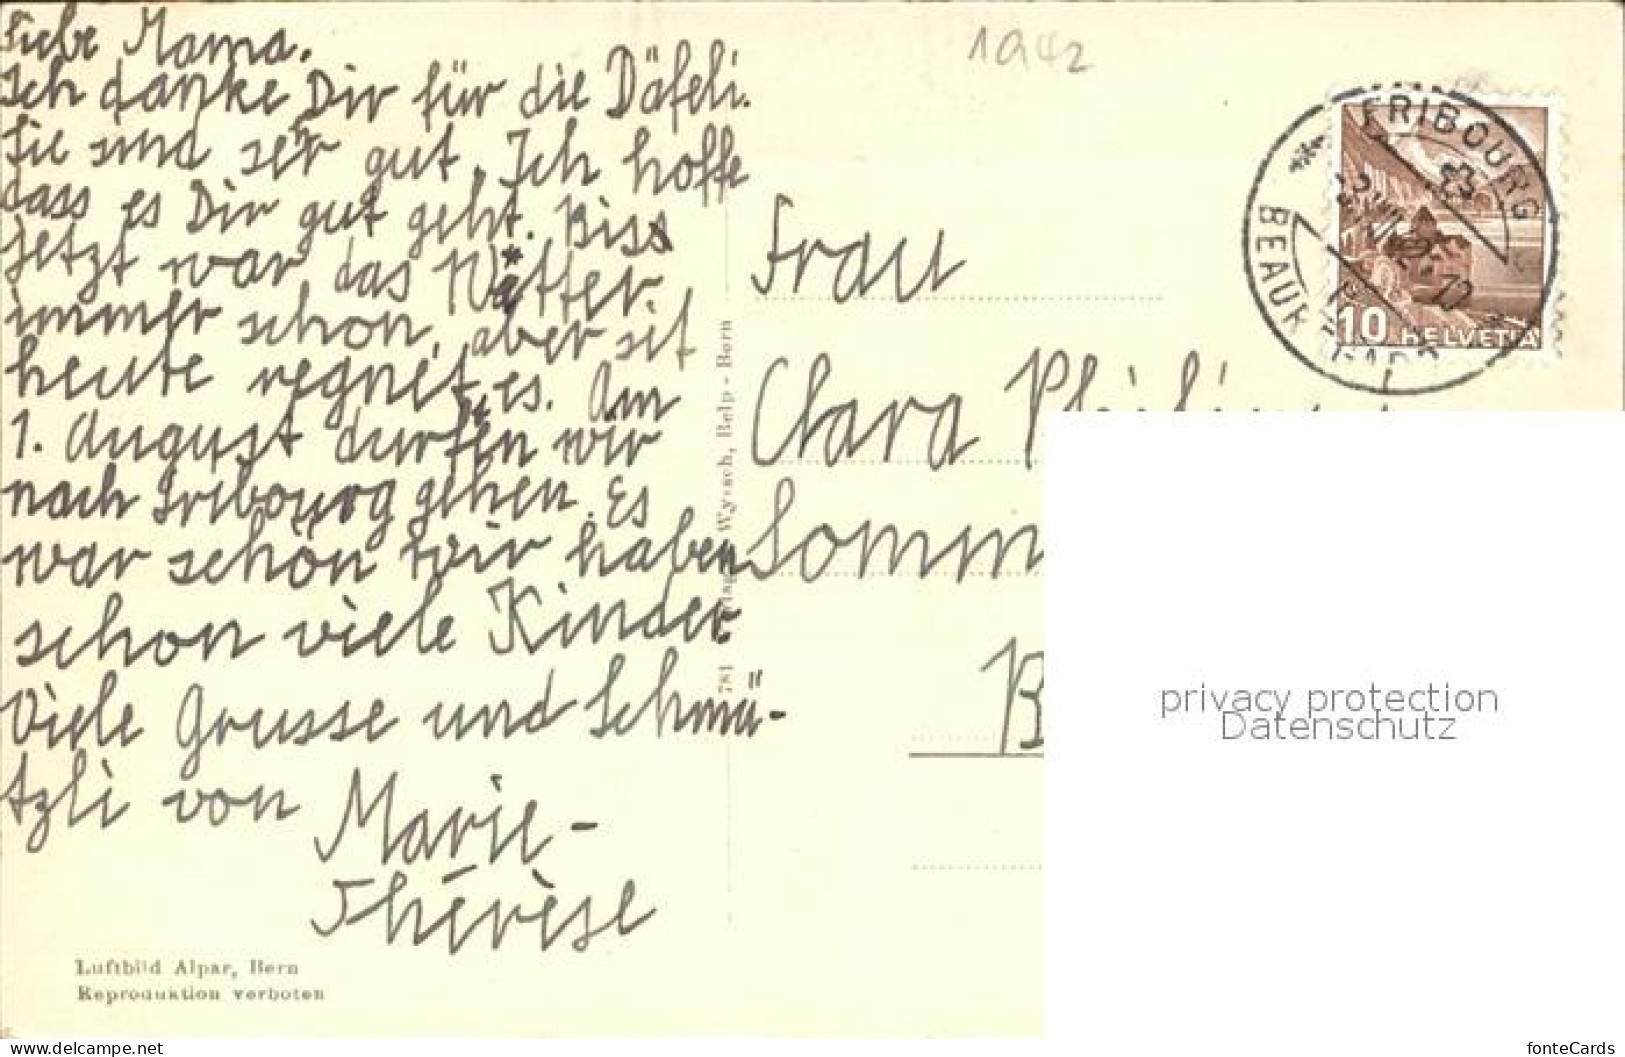 Liebe Mama.
Ich danke Dir für die Däfeli.
Sie sind sehr gut. Ich hoffe
dass es Dir gut geht. Biss
Jetzt war das Wätter
immer schon, aber sit
heute regnet es. Am
1. August dürfen wir
nach Fribourg gehen. Es
war schön wir haben
schon viele Kinder
Viele Grusse und Schmü-
tzli von
Marie-
Thérèse
Luftbild Alpar, Bern
Reproduktion verboten
781 Wyssch, Belp - Bern
1942
FRIBOURG
BEAUREGARD
10 HELVETIA
Frau
Clara
Somm
B
privacy protection
Datenschutz
https://www.ansichtskarten-center.de/
fonteCards